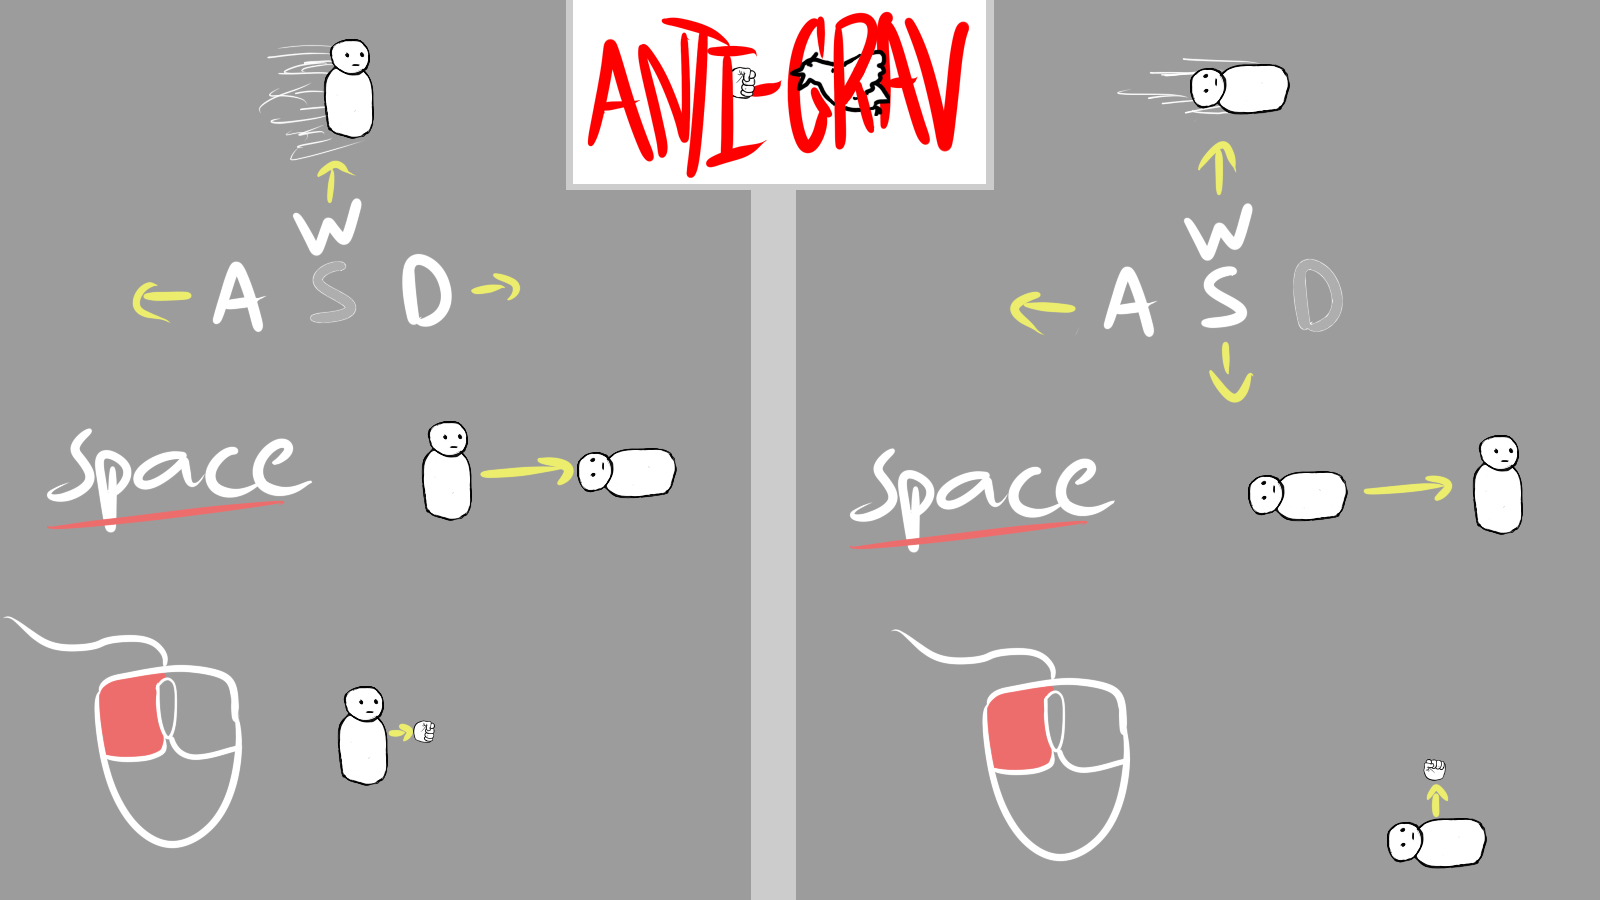 ANTI-GRAV
W
A S D
Space
W
A S D
Space